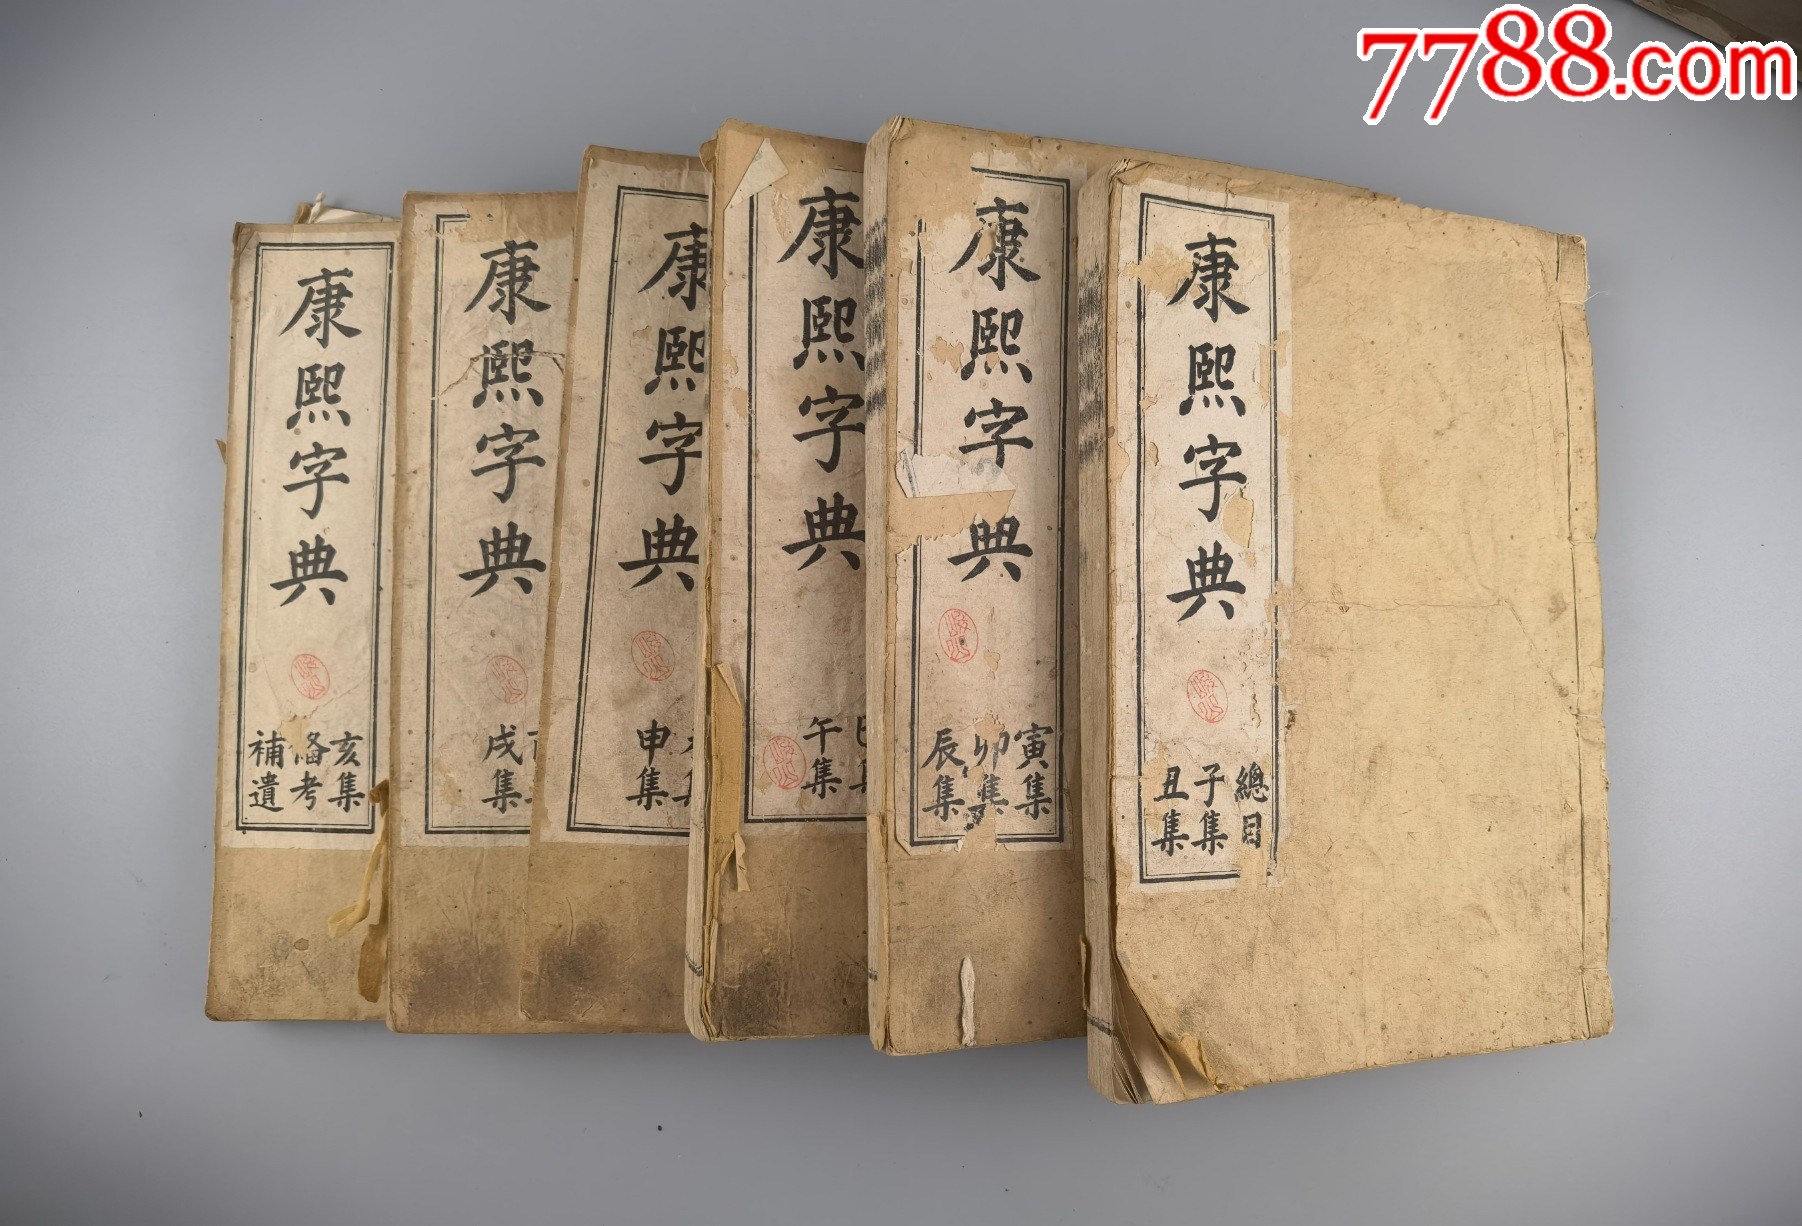 7788.com
康熙字典
總目
子集
丑集
康熙字典
寅集
卯集
辰集
康熙字典
午集
康熙字典
申集
康熙字典
戌集
康熙字典
亥集
备考
補遺